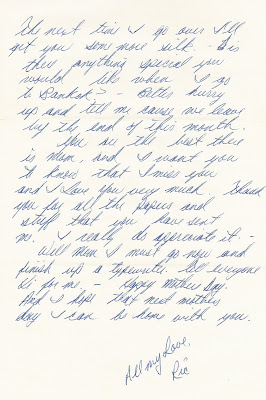 The next time I go over I'll
get you some more silk. - Is
there anything special you
would like when I go
to Bankok? - Better hurry
up and tell me cause we leave
by the end of this month.
You are the best there
is Mom, and I want you
to know that I miss you
and I Love you very much Thank
you for all the papers and
stuff that you have sent
me. I really do appreciate it. -
Well Mom I must go now and
finish up a typewriter. Tell everyone
Hi for me. - Happy Mothers Day.
And I hope that next mothers
day I can be home with you.
All my Love,
Ric